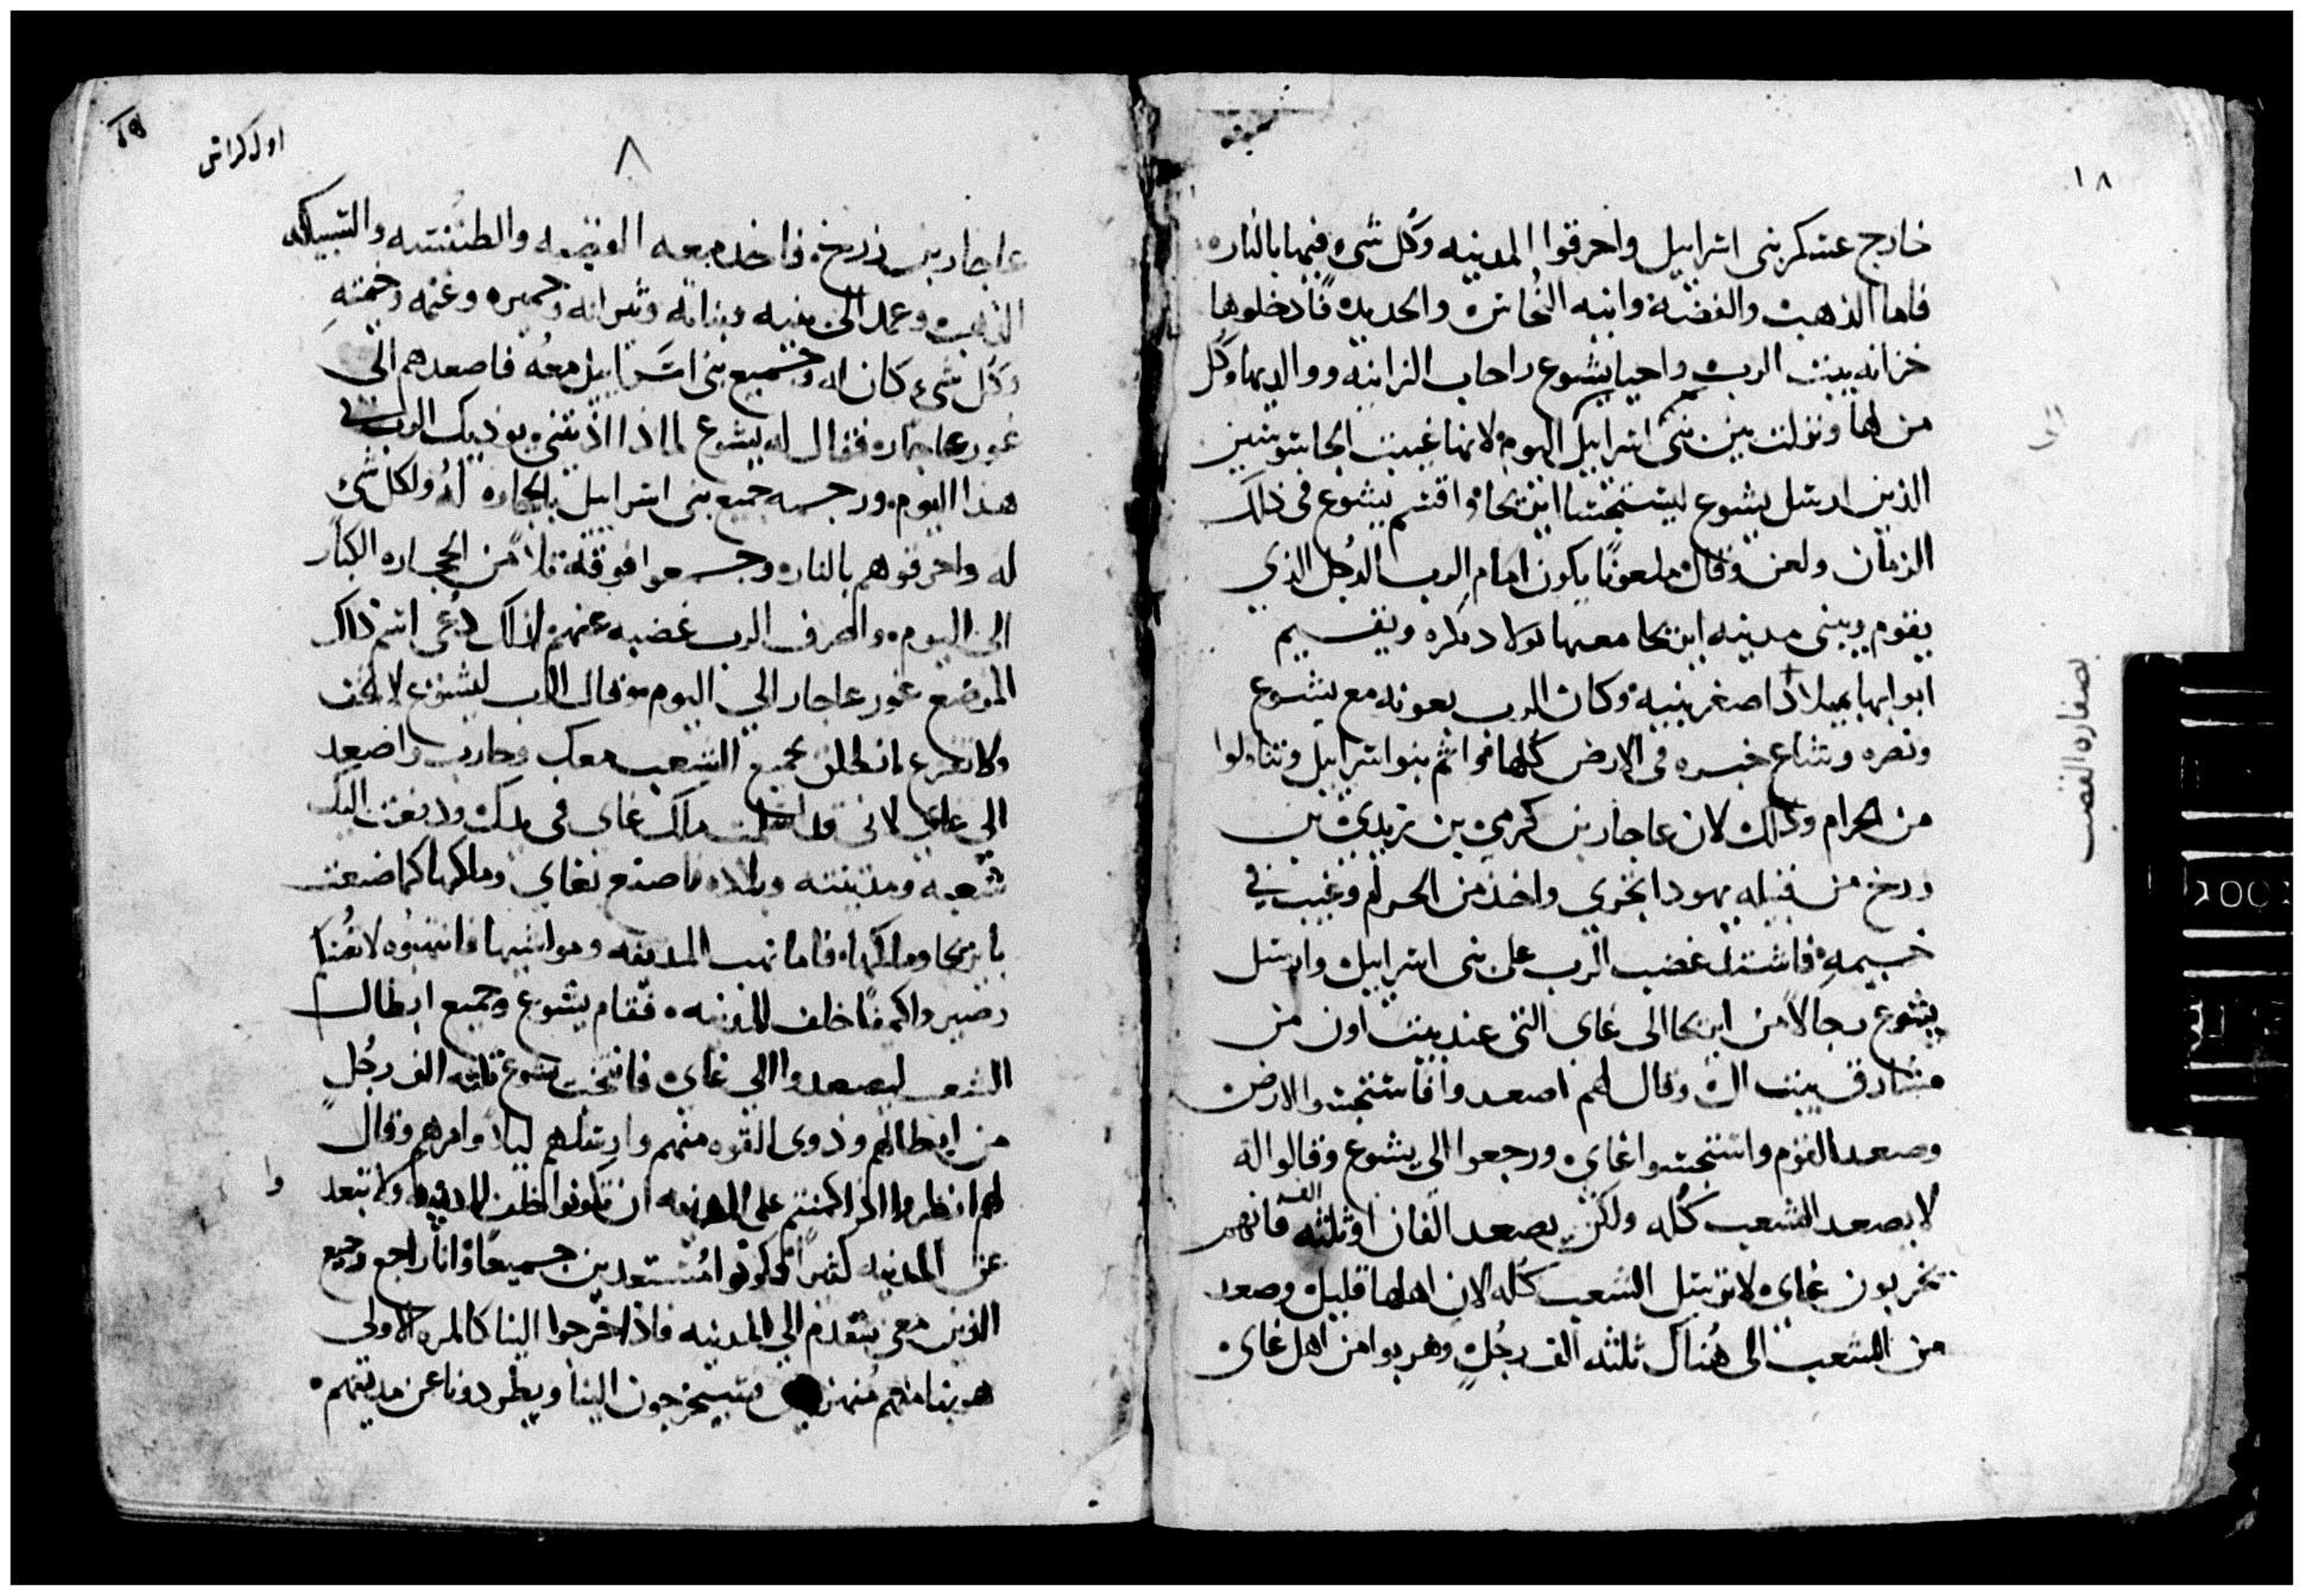 ١٨
خارج عسكر بنى اسراييل واحرقوا المدينه وكل شى فيها بالنار
فاما الذهب والفضة وانيه النُحاس والحديد فادخلوها
خزانه بيت الرب واحيا يشوع راحاب الزانيه ووالديها وكل
من لها ونزلت بين بنى اسراييل اليوم لانها غيبت الجاسوسين
الذين ارسل يشوع ليستجسسا اريحا واقسم يشوع فى ذلك
الزمان ولعن وقال ملعونًا يكون امام الرب الرجل الذي
يقوم ويبنى مدينه اريحا معما بولاد بكره ويقسيم
ابوابها بميلاد اصغر بنيه وكان الرب بعونه مع يشوع
ونصره وشاع خبره فى الارض كُلها فواثم بنو اسراييل وتناولوا
من الحرام وذلك لان عاجار بن كرمي بن زبدي بن
زرخ من قبيله يهودا اجترى واخذ من الحرام وغيب في
خيمه فاشتد غضب الرب على بنى اسراييل وارسل
يشوع رجالاً من اريحا الى غاى التى عند بيت اون من
مشارق بيت ال وقال لهم اصعدوا فاستجسوا الارض
وصعد القوم واستجسوا غاى ورجعوا الى يشوع وقالوا له
لا يصعد الشعب كُله ولكن يصعد الفان او ثلثه الف فانهم
يخربون غاى لا ترسل الشعب كُله لان اهلها قليل وصعد
من الشعب الى هُناك ثلثه الف رجُلٍ وهربوا من اهل غاى
بصفاره القصب
١٩
اول كراس
٨
عاجار بن زرخ فاخذ معه الفضه والطنفسه والسبيكه
الذهب وعمد الى بنيه وبناته وثيرانه وحميره وغنمه وخيمته
وكُل شىء كان له وجميع بنى اسراييل معُه فاصعدهم الى
غور عاجار فقال له يشوع لماذا اذيتني يوذيك الرب في
هذا اليوم ورجمه جميع بنى اسراييل بالحجاره لهُ ولكل شى
له واحرقوهم بالنار وجمعوا فوقه تلاً من الحجاره الكبار
الى اليوم وصرف الرب غضبه عنهم لذلك دُعى اسم ذلك
الموضع غور عاجار الى اليوم وقال الرب ليشوع لا تخف
ولا تفزع انطلق بجميع الشعب معك وحارب واصعد
الى غاي لانى قد اسلمت ملك غاى فى يدك ودفعت اليك
شعبه ومدينته وبلاده فاصنع بغاى وملكها كما صنعت
باريحا وملكها فاما نهب المدينه ومواشيها فانهبُوه لانفُسكم
وصيروا كمينًا خلف المدينه فقام يشوع وجميع ابطال
الشعب ليصعدوا الى غاى فانتخب يشوع ثلثه الف رجُلٍ
من ابطالهم وذوى القوه منهم وارسلهم ليلاً وامرهم وقال
لهم انظروا اذا كمنتم على المدينه ان تكونوا خلف المدينه ولا تبعد وا
عن المدينه كثيرًا وكونوا مُستعدين جميعًا وانا راجع وجميع
الذين معى نتقدم الى المدينه فاذا خرجوا الينا كالمره الاولى
هربنا منهم مُنهزمين فسيخرجون الينا ويطردونا عن مدينتهم